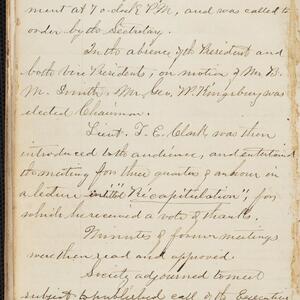 ment at 7 o'clock P.M., and was called to
order by the Secretary.
In the absence of the President and
both Vice Presidents; on motion of Mr. B.
M. Smith, Mr. Geo. W. Kingsbury was
elected Chairman.
Lieut. T. E. Clark was then
introduced to the audience, and entertained
the meeting for three quarters of an hour in
a lecture entitled "Recapitulation", for
which he received a vote of thanks.
Minutes of former meetings
were then read and approved.
Society adjourned to meet
subject to published call of the Executive